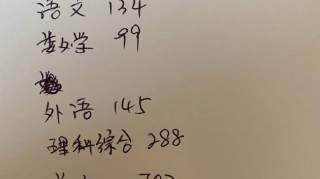 语文 134
数学 99
外语 145
理科综合 288